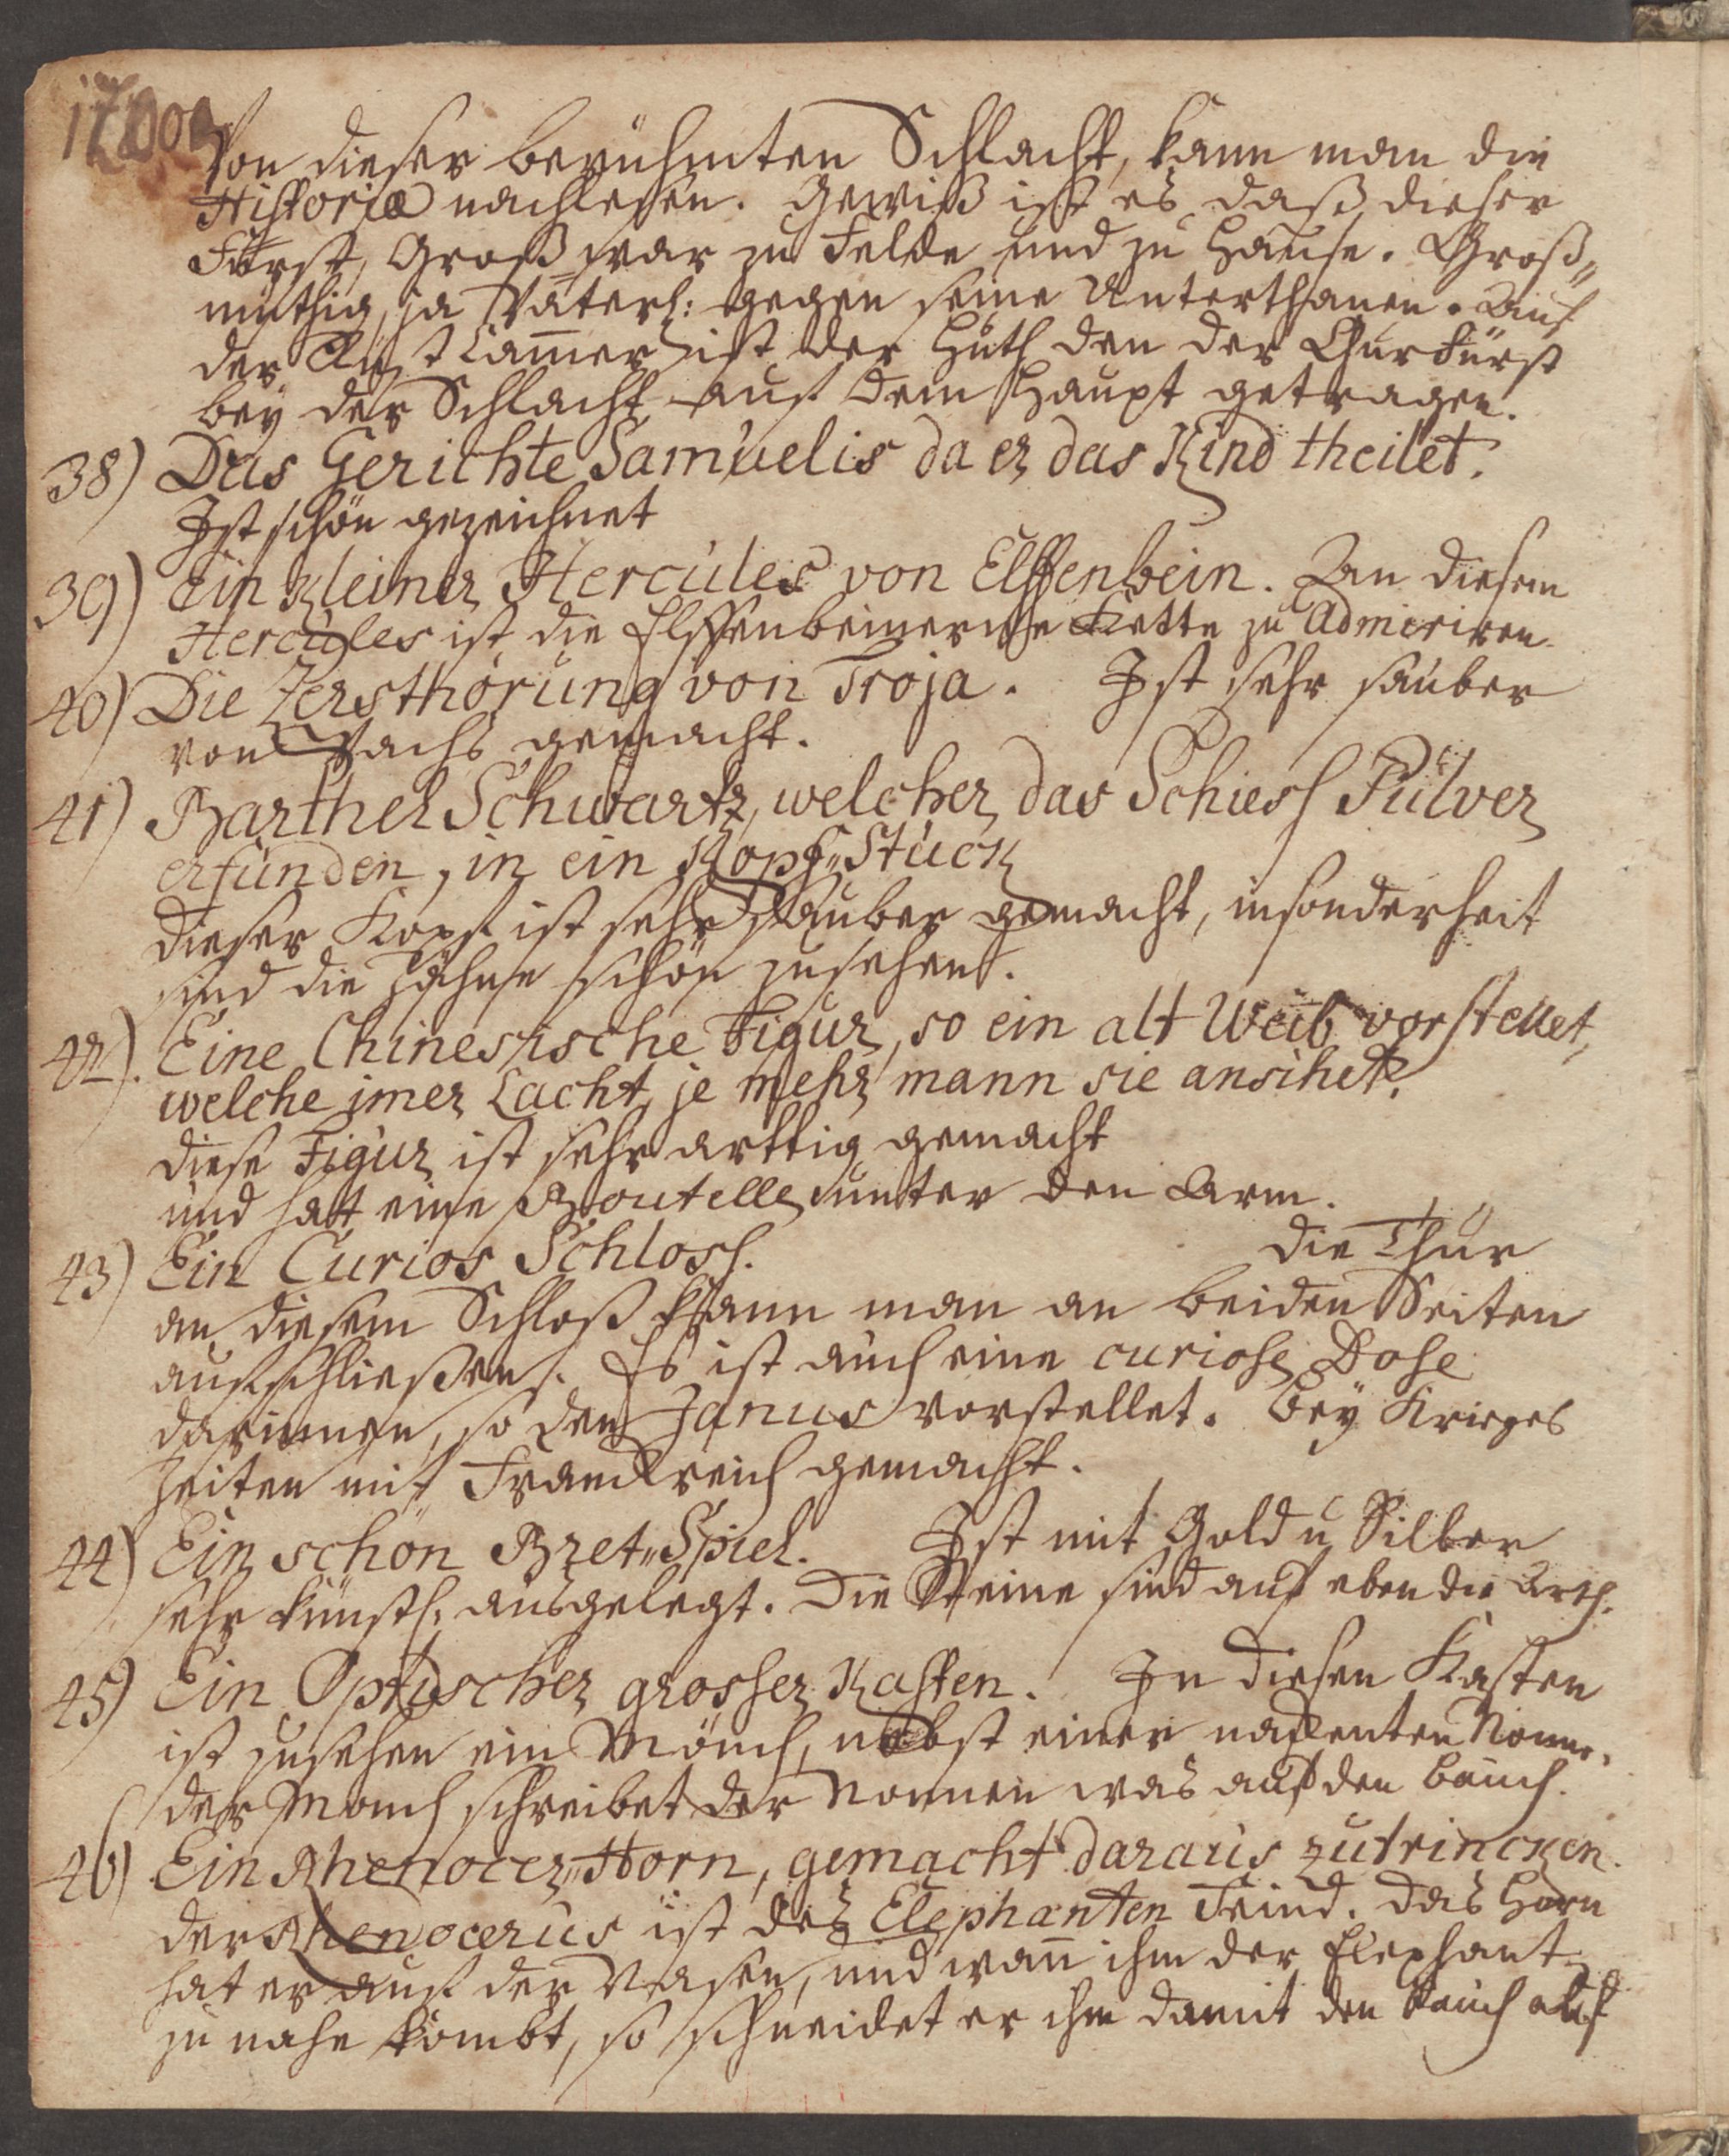 Von dieser berühmten Schlacht, kann man die
Historie nachlesen. Gewiß ist es daß dieser
Fürst, Groß war zu Felde und zu Hause. Groß„
müthig, ja Väterl: gegen seine Unterthanen. Auf
der Kunstkam̅er ist der Huth den der Churfürst
bey der Schlacht auf dem Haupt getragen.
38) Das Gerichte Samuelis da er das Kind theilet.
Ist schön gezeichnet
39) Ein Kleiner Hercules von Elffenbein. An diesem
Hercules ist die Elffenbeinerne Kette zu Admiriren.
40) Die Zersthörung von Troja. Ist sehr sauber
von Wachs gemacht.
41) Barthel Schwartz, welcher das Schiess Pulver
erfunden, in ein Kopf„Stück
dieser Kopf ist sehr sauber gemacht, insonderheit
sind die Zähne schön zusehen.
42). Eine Chinesische Figur, so ein alt Weib vorstellet,
welche imer Lacht, je mehr mann sie ansihet.
diese Figur ist sehr arttig gemacht
und hatt eine Boutelle unter den Arm.
43) Ein Curios Schloss. die Thür
an diesem Schloß kann man an beiden Seiten
aufschließen. Es ist auch eine curiose Dose
darinnen, so den Janus vorstellet. bey Krieges
Zeiten mit Franckreich gemacht.
44) Ein schön Bret„Spiel. Ist mit Gold u Silber
sehr künstl. ausgelegt. Die Steine sind auf eben die Arth.
45) Ein Optischer grosser Kasten. In diesen Kasten
ist zusehen ein Mönch, nebst einer nackenten Nonne.
der Mönch schreibet der Nonnen was auf den bauch.
46) Ein Rhenocer„Horn, gemacht daraus zutrincken.
der Rhenocerus ist des Elephanten Feind. das Horn
hat er auf der Nasen, und wan̅ ihm der Elephant
zu nahe kombt, so schneidet er ihm damit den bauch auf